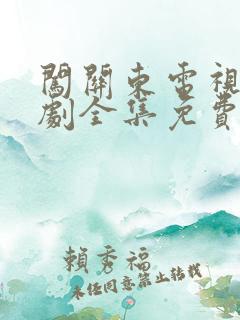 闖關東電視
劇全集免費
賴秀福
未经同意禁止转载